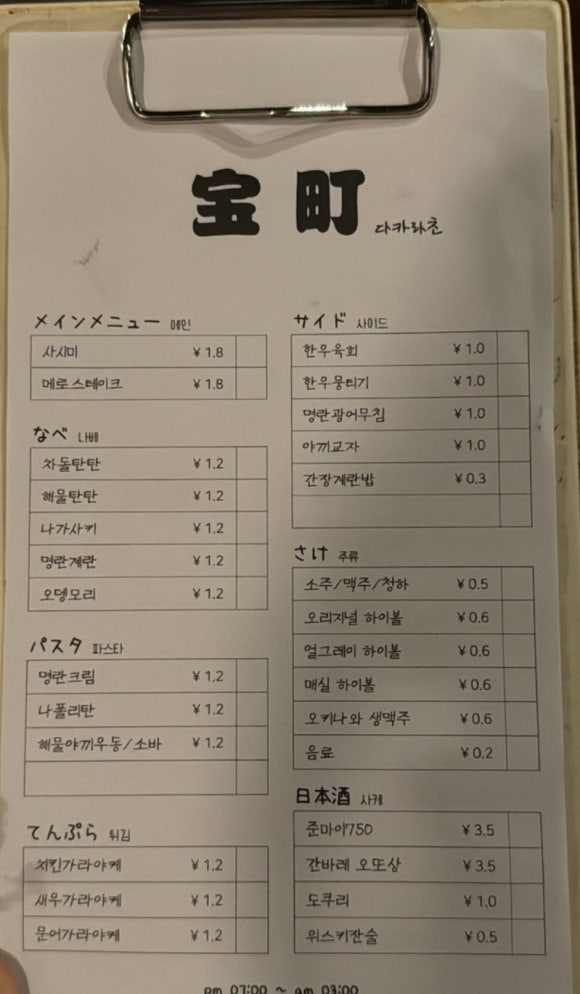 宝町 다카라쵸
メインメニュー 메인
사시미 ¥ 1.8
메로스테이크 ¥ 1.8
なべ 나베
차돌탄탄 ¥ 1.2
해물탄탄 ¥ 1.2
나가사키 ¥ 1.2
명란계란 ¥ 1.2
오뎅모리 ¥ 1.2
パスタ 파스타
명란크림 ¥ 1.2
나폴리탄 ¥ 1.2
해물야끼우동/소바 ¥ 1.2
てんぷら 튀김
치킨가라아케 ¥ 1.2
새우가라아케 ¥ 1.2
문어가라아케 ¥ 1.2
サイド 사이드
한우육회 ¥ 1.0
한우뭉티기 ¥ 1.0
명란광어무침 ¥ 1.0
야끼교자 ¥ 1.0
간장계란밥 ¥ 0.3
さけ 주류
소주/맥주/청하 ¥ 0.5
오리지널 하이볼 ¥ 0.6
얼그레이 하이볼 ¥ 0.6
매실 하이볼 ¥ 0.6
오키나와 생맥주 ¥ 0.6
음료 ¥ 0.2
日本酒 사케
준마이750 ¥ 3.5
간바레 오또상 ¥ 3.5
도쿠리 ¥ 1.0
위스키잔술 ¥ 0.5
pm 07:00 ~ am 03:00